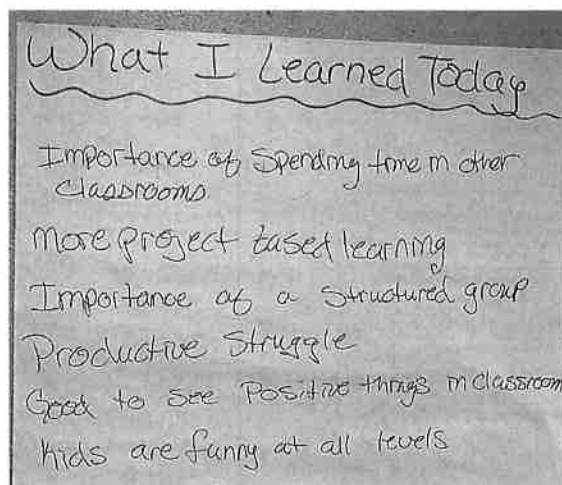 What I Learned Today
Importance of Spending time in other
classrooms
More project based learning
Importance of a structured group
Productive Struggle
Good to see Positive things in classroom
Kids are funny at all levels